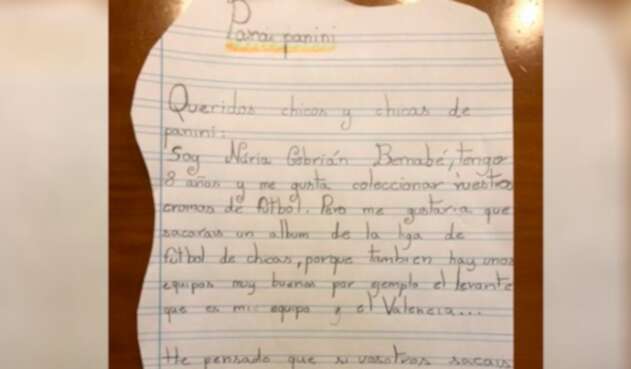 Para: panini
Queridos chicos y chicas de
panini:
Soy Núria Cebrián Benabé, tengo
8 años y me gusta coleccionar vuestros
cromos de fútbol. Pero me gustaría que
sacarais un album de la liga de
fútbol de chicas, porque tambien hay unos
equipos muy buenos por ejemplo el levante
que es mi equipo y el Valencia...
He pensado que si vosotros sacais